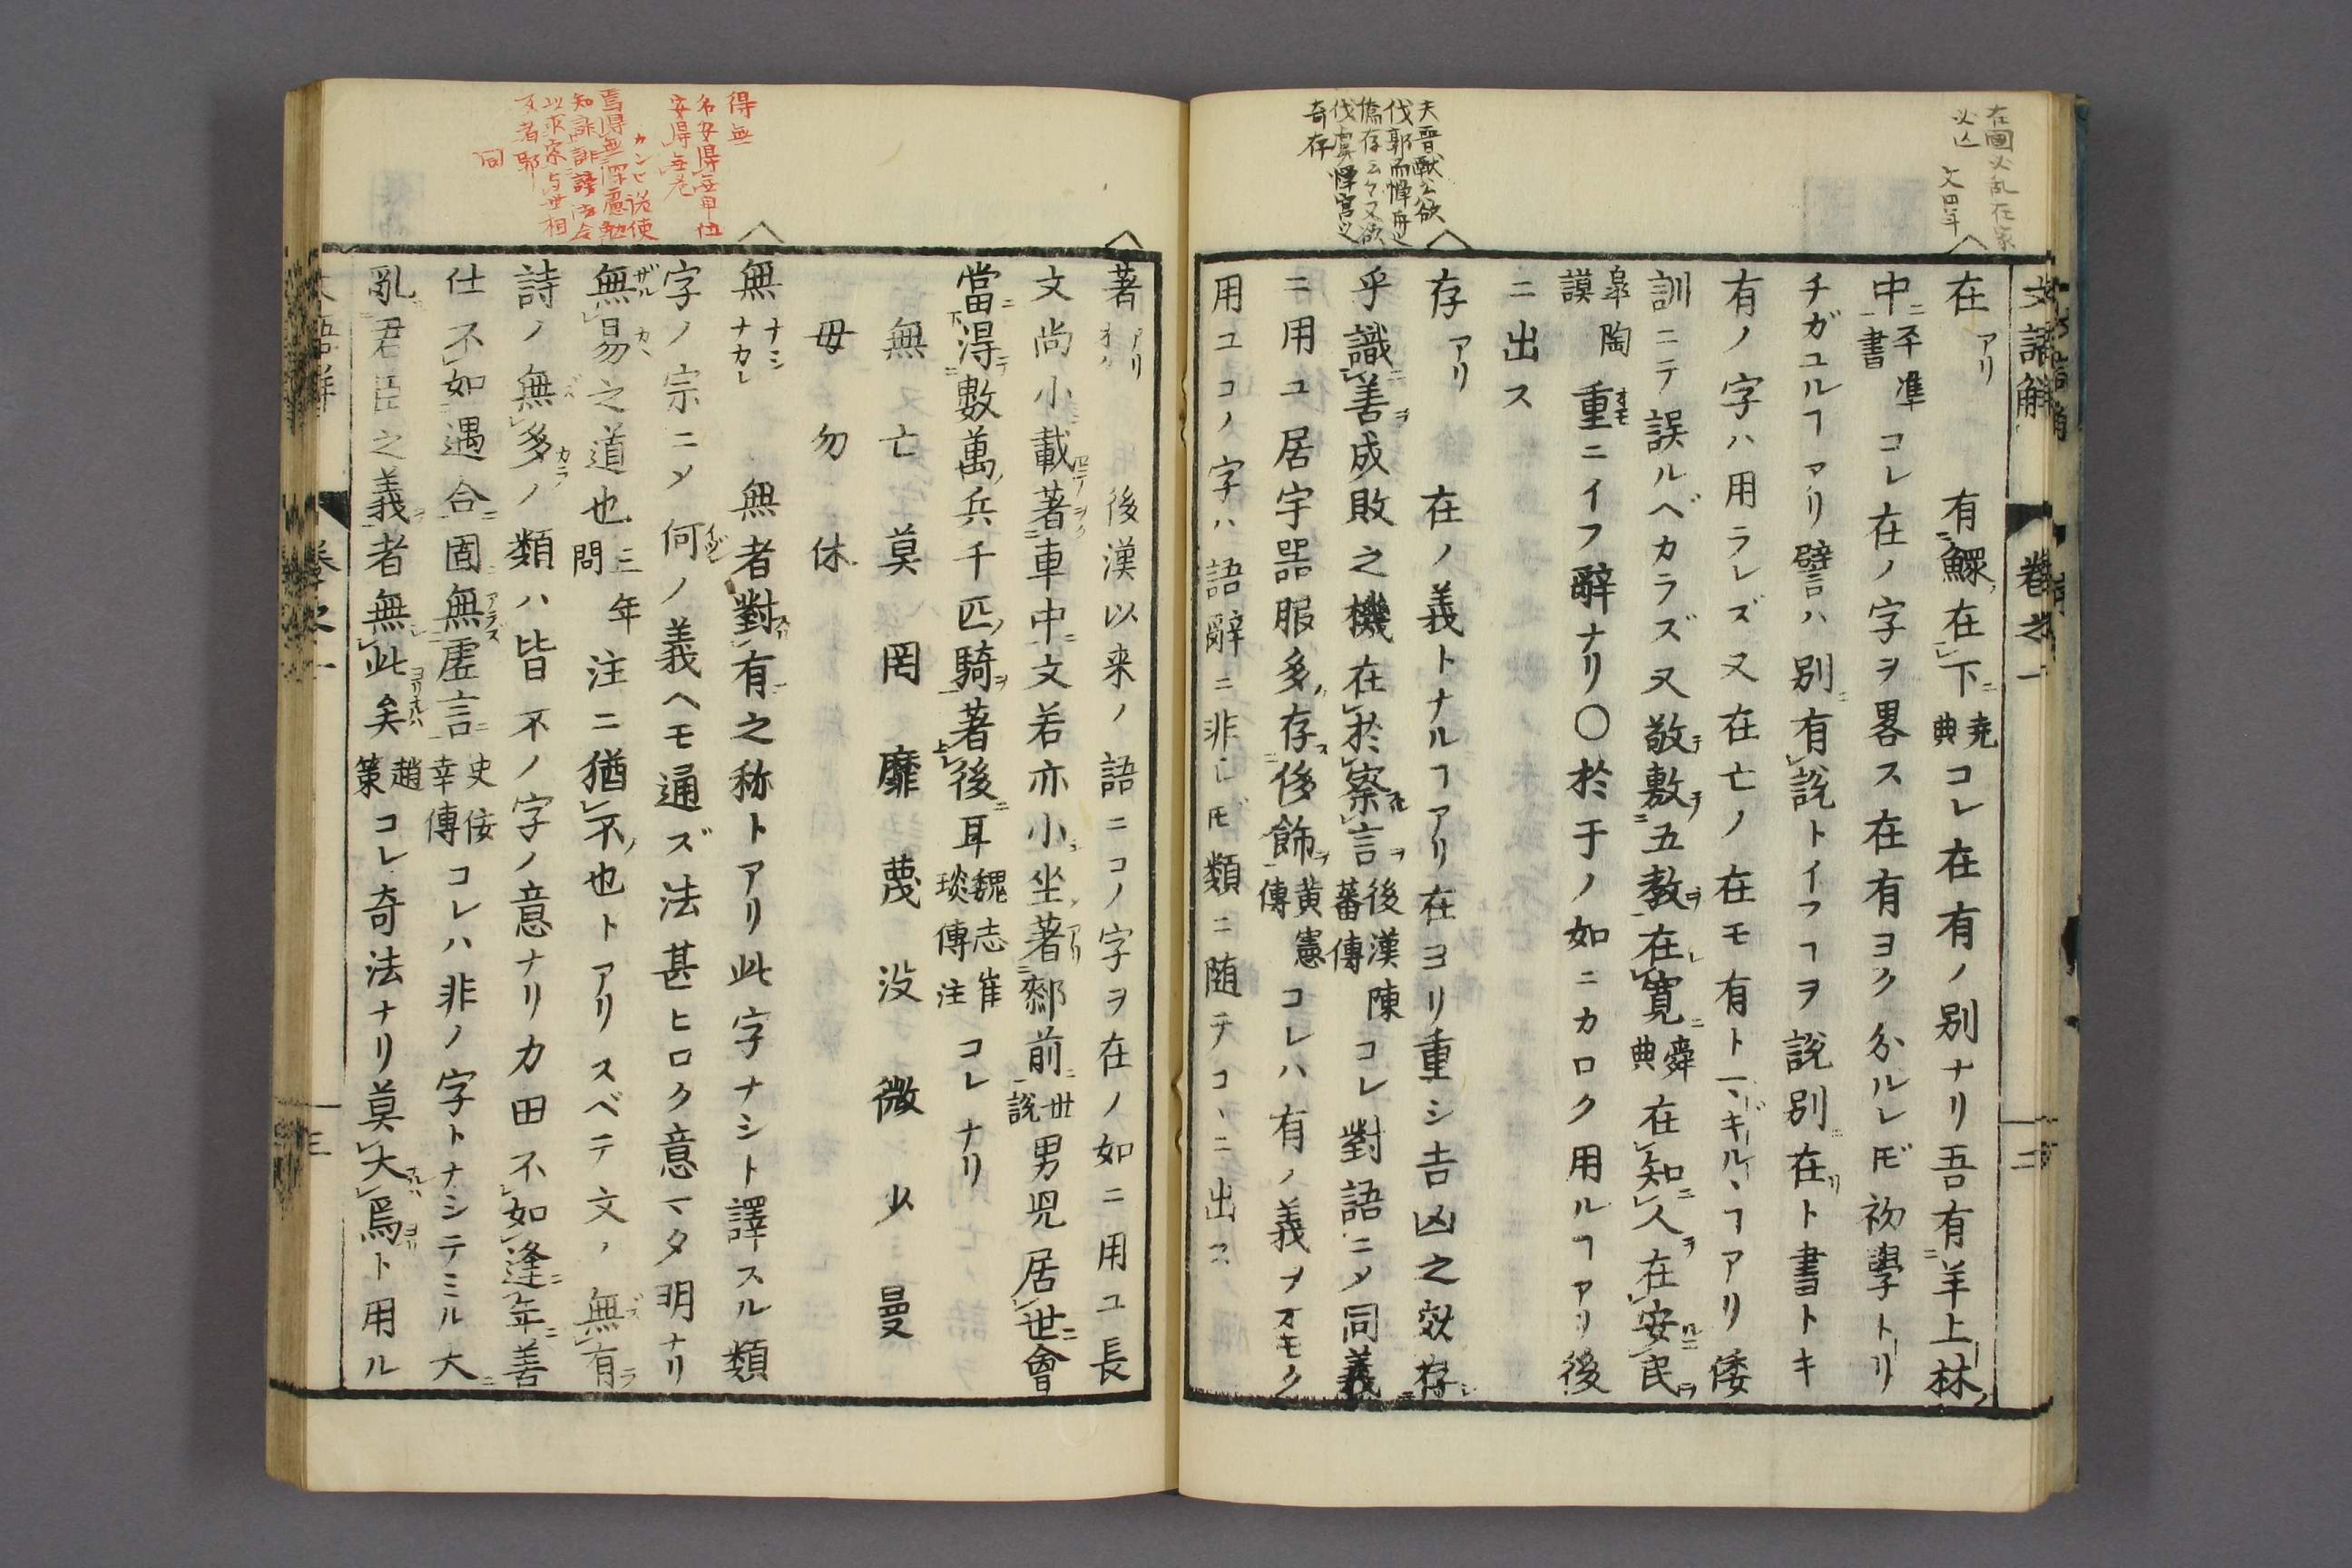 在國必乱在家
必亾　文四年
文語解　卷之一　二
在アリ　有鰥在下堯典コレ在有ノ別ナリ吾有羊上林
中平準書コレ在ノ字ヲ畧ス在有ヨク分ルレ𪜈初學トリ
チガユルヿアリ譬ハ別有說トイフヿヲ說別在ト書トキ
有ノ字ハ用ラレズ又在亡ノ在モ有トマギルヽヿアリ倭
訓ニテ誤ルベカラズ又敬敷五教在寬舜典在知人在安民
皐陶謨重ニイフ辭ナリ〇於于ノ如ニカロク用ルヿアリ後
ニ出ス
夫晋獻公欲
伐郭而憚舟之
僑存云々又欲
伐虞憚宮之
奇存
存アリ　在ノ義トナルヿアリ在ヨリ重シ吉凶之效存
乎識善成敗之機在於察言後漢陳蕃傳コレ對語ニメ同義
ニ用ユ居宇噐服多存侈飾黃憲傳コレハ有ノ義ヲオモク
用ユコノ字ハ語辭ニ非レ𪜈類ニ随テコヽニ出ス
著アリオク　後漢以来ノ語ニコノ字ヲ在ノ如ニ用ユ長
文尚小載著車中文若亦小坐著郄前世說男児居世會
當得數萬兵千匹騎著後耳魏志崔琰傳注コレナリ
無亡莫罔靡蔑没微少曼
毋勿休
得無
名安得無早位
安得無老
カンヒ說使
焉得無深慮勉
知詐誹謗法令
以求索与世相
又者耶
同
無ナシナカレ　無者對有之称トアリ此字ナシト譯スル類
字ノ宗ニメ何ノ義ヘモ通ズ法甚ヒロク意マタ明ナリ
無易之道也三年問注ニ猶不也トアリスベテ文ノ無有
詩ノ無多ノ類ハ皆不ノ字ノ意ナリ力田不如逢年善
仕不如遇合固無虚言史佞幸傳コレハ非ノ字トナシテミル大
亂君臣之義者無此矣趙策コレ奇法ナリ莫大焉ト用ル
文語解　卷之一　三